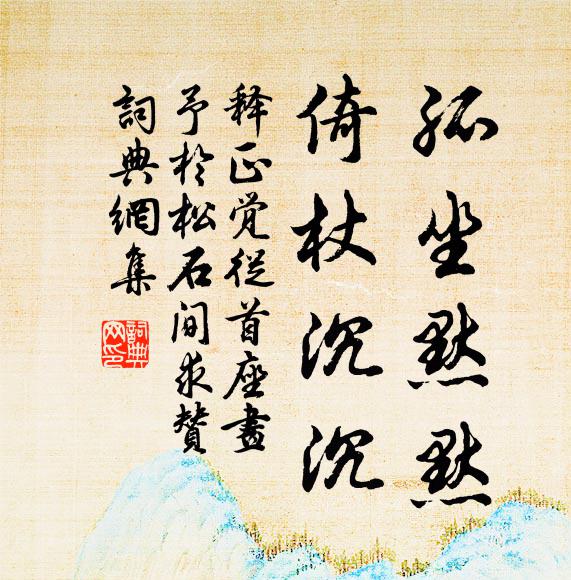 孤坐默默
倚杖沉沉
释正觉從首座畫
予於松石间求賛
詞典網集
詞典
网印